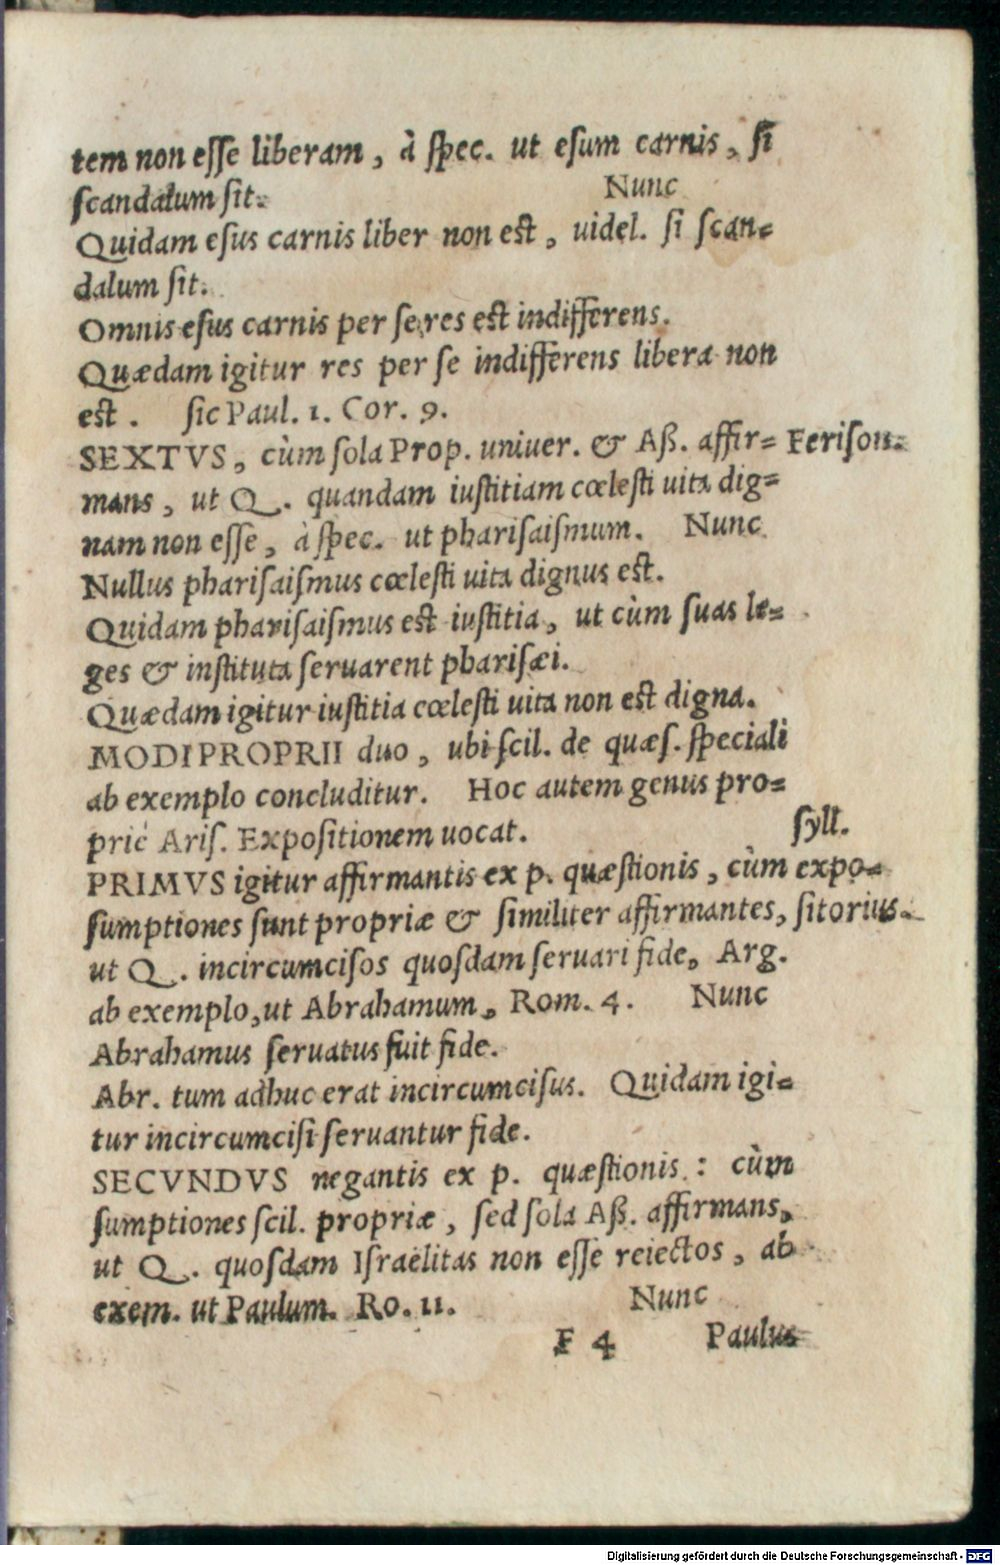 tem non eſſe liberam, à ſpec. ut eſum carnis, ſi
ſcandalum ſit. Nunc
Quidam eſus carnis liber non est, uidel. ſi ſcan-
dalum ſit.
Omnis eſus carnis per ſe res est indifferens.
Quædam igitur res per ſe indifferens libera non
est. ſic Paul. 1. Cor. 9.
SEXTVS, cùm ſola Prop. uniuer. & Aß. affir- Feriſon-
mans, ut Q. quandam iuſtitiam cœleſti uita dig-
nam non eſſe, à ſpec. ut phariſaiſmum. Nunc
Nullus phariſaiſmus cœleſti uita dignus est.
Quidam phariſaiſmus est iuſtitia, ut cùm ſuas le-
ges & inſtituta ſeruarent phariſæi.
Quædam igitur iuſtitia cœleſti uita non est digna.
MODI PROPRII duo, ubi ſcil. de quæſ. ſpeciali
ab exemplo concluditur. Hoc autem genus pro-
priè Ariſ. Expoſitionem uocat. ſyll.
PRIMVS igitur affirmantis ex p. quæſtionis, cùm expo-
ſumptiones ſunt propriæ & ſimiliter affirmantes, ſitorius.
ut Q. incircumciſos quoſdam ſeruari fide, Arg.
ab exemplo, ut Abrahamum, Rom. 4. Nunc
Abrahamus ſeruatus fuit fide.
Abr. tum adhuc erat incircumciſus. Quidam igi-
tur incircumciſi ſeruantur fide.
SECVNDVS negantis ex p. quæſtionis: cùm
ſumptiones ſcil. propriæ, ſed ſola Aß. affirmans,
ut Q. quoſdam Iſraëlitas non eſſe reiectos, ab
exem. ut Paulum. Ro. 11. Nunc
F 4 Paulus
Digitalisierung gefördert durch die Deutsche Forschungsgemeinschaft - DFG